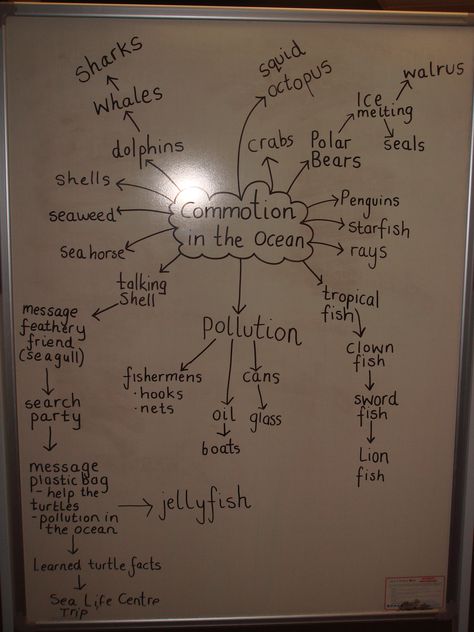 Sharks
Whales
dolphins
Shells
seaweed
Sea horse
talking
Shell
message
feathery
friend
(seagull)
search
party
message
plastic bag
- help the
turtles
- pollution in
the ocean
jellyfish
Learned turtle facts
Sea Life Centre
Trip
squid
octopus
crabs
Polar
Bears
Ice
melting
walrus
seals
Commotion
in the Ocean
Penguins
starfish
rays
tropical
fish
clown
fish
sword
fish
Lion
fish
Pollution
fishermens
· hooks
· nets
oil
boats
cans
glass